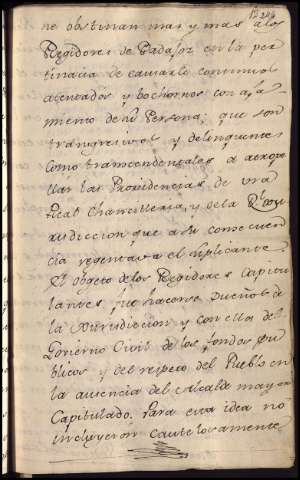 se obstinan mas y mas a los
Regidores de Badajoz en la per
tinacia de causarle continuos
atentados y bochornos con aja
miento de su Persona; que son
transgresivos y delinquentes
como transcendentales a atrope
llar las Providencias de una
Real Chancilleria, y de la Rl Jury
isdiccion que a su consecuen
cia regentava el suplicante
El objeto de los Regidores Capitu
lantes, fue hacerse Dueños de
la Jurisdiccion y con ella del
Govierno Civil de los fondos Pu
blicos y del respeto del Pueblo en
la ausencia del Alcalde mayor
Capitulado. Para esta idea no
incluyeron cautelosamente